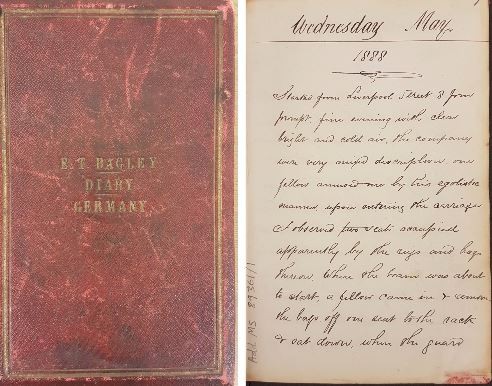 E. T BAGLEY
DIARY
GERMANY
Wednesday May
1888
Started from Liverpool Street 8 from
prompt, fine evening with clear
bright and cold air, the company
were very mixed description one
fellow annoyed me by his egotistic
manner, upon entering the carriage
I observed two seats occupied
apparently by the rugs and bags
thereon. When the train was about
to start, a fellow came in & remove
the bags off one seat to the rack
& sat down, when the guard
Add MS 89361/1